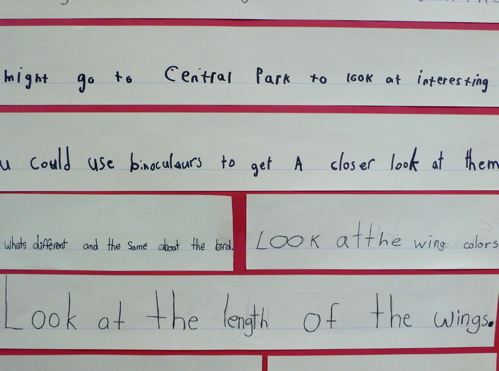 might go to Central Park to look at interesting
u could use binoculaurs to get A closer look at them
whats different and the same about the bird.
LOOK at the wing colors
Look at the length of the wings.